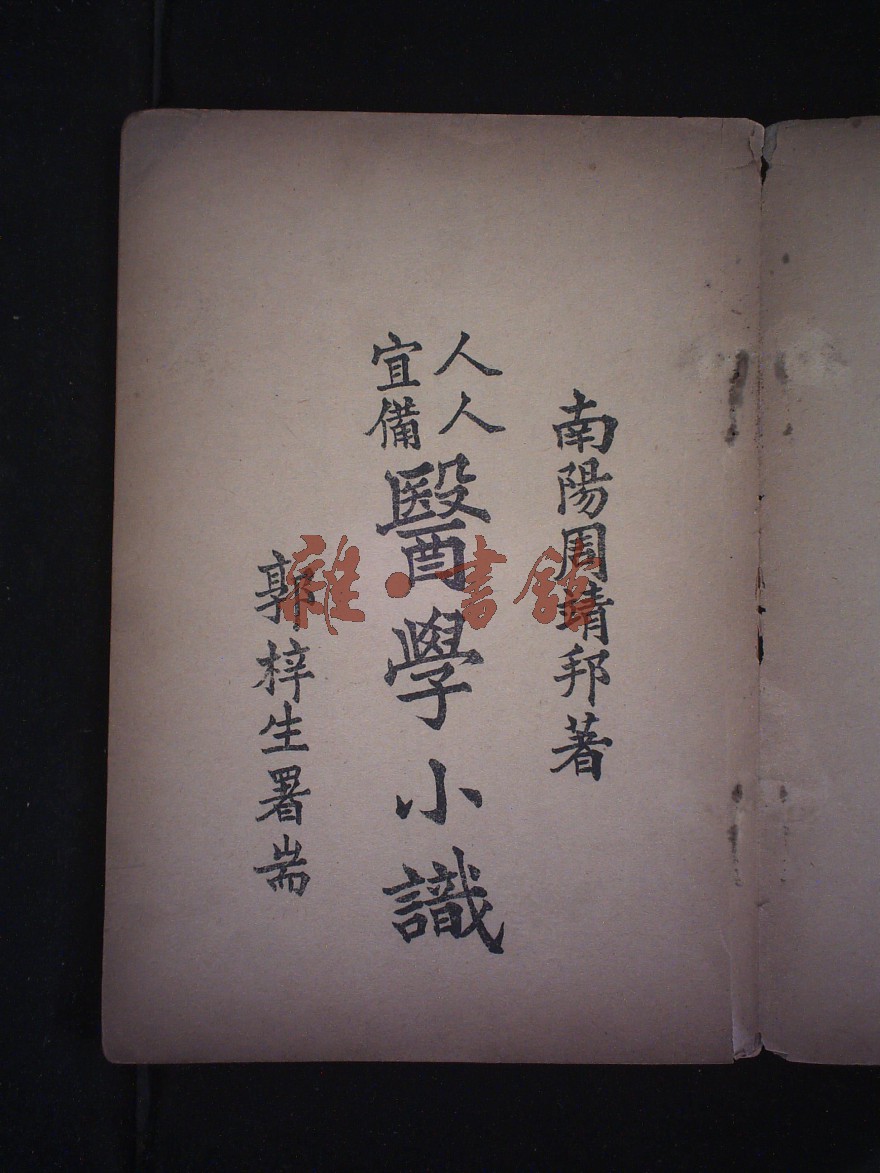 南陽周靖邦著
人人
宜備
醫學小識
郭梓生署耑
雜·書館